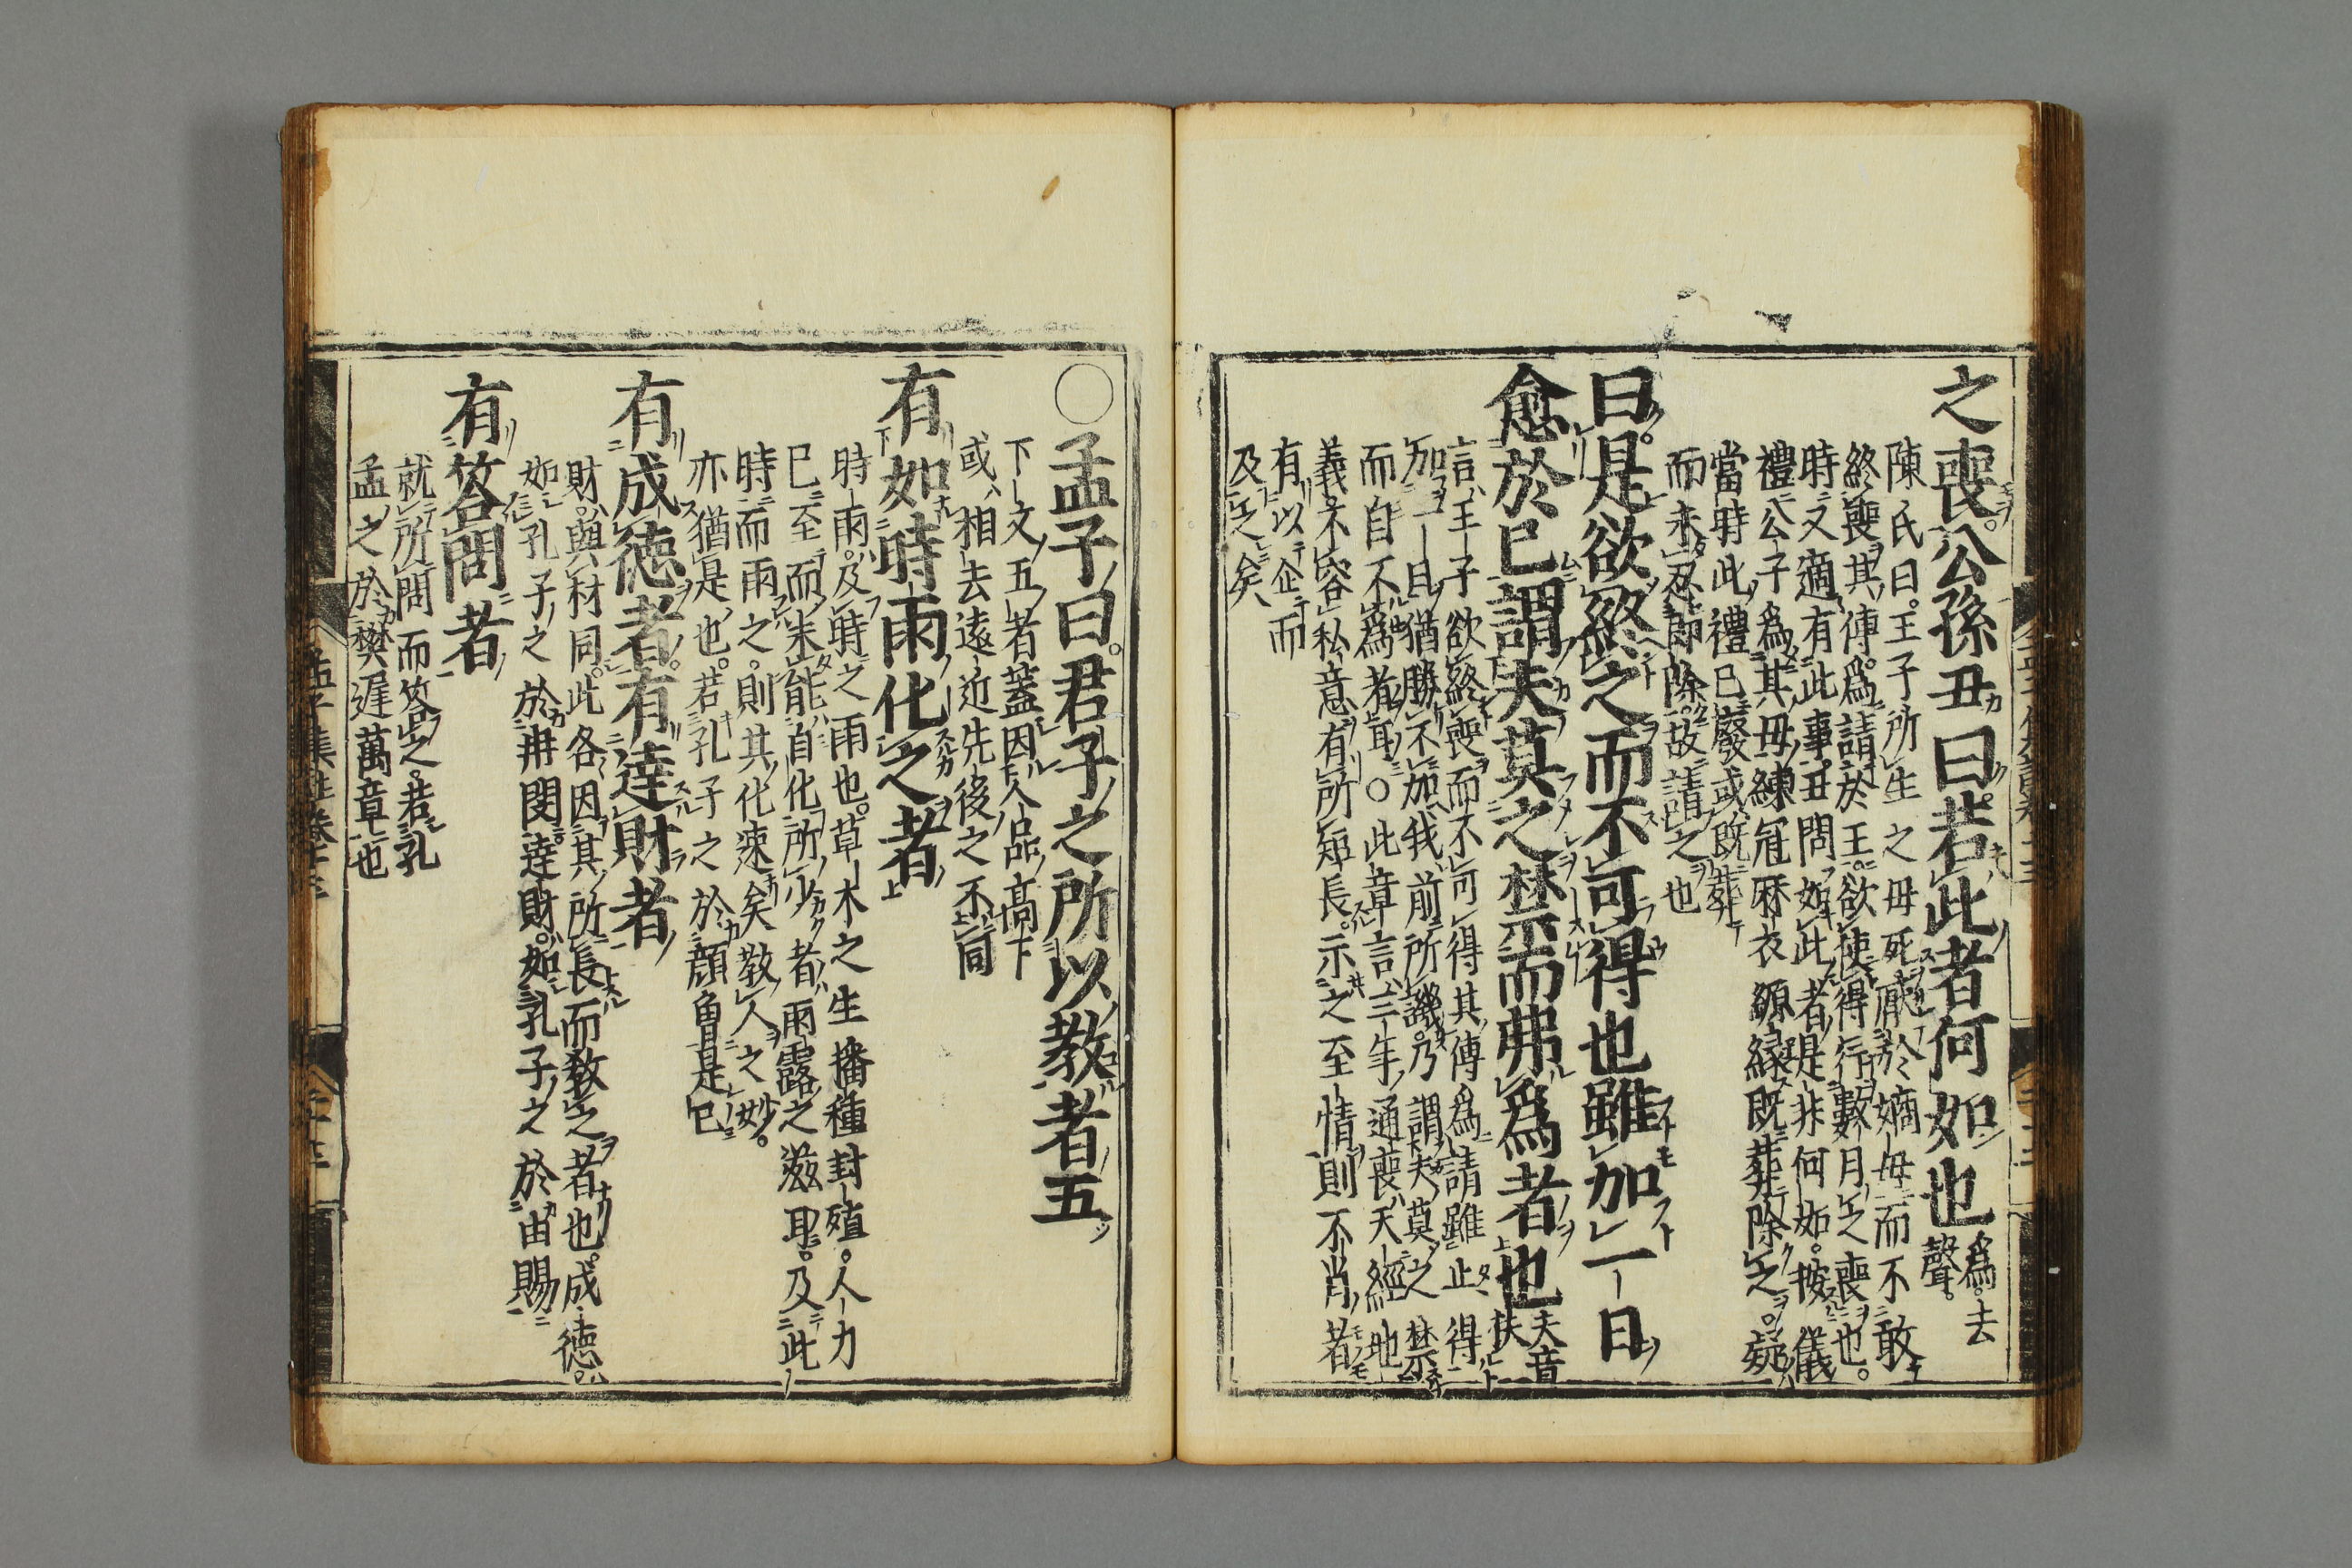 之喪公孫丑曰若此者何如也爲去聲
陳氏曰王子所生之母死厭於嫡母而不敢
終喪其傅爲請於王欲使得行數月之喪也
時又適有此事丑問如此者是非何如按儀
禮公子爲其母練冠麻衣縓緣既葬除之疑
當時此禮已廢或既葬
而未忍即除故請之也
曰是欲終之而不可得也雖加一日
愈於已謂夫莫之禁而弗爲者也夫音扶
言王子欲終喪而不可得其傅爲請雖止得
加一日猶勝不加我前所譏乃謂夫莫之禁
而自不爲者耳○此章言三年通喪天經地
義不容私意有所短長示之至情則不肖者
有以企而
及之矣
○孟子曰君子之所以教者五
下文五者蓋因人品高下
或相去遠近先後之不同
有如時雨化之者
時雨及時之雨也草木之生播種封殖人力
已至而未能自化所少者雨露之滋耳及此
時而雨之則其化速矣教人之妙
亦猶是也若孔子之於顔曾是已
有成德者有達財者
財與材同此各因其所長而教之者也成德
如孔子之於冉閔達財如孔子之於由賜
有答問者
就所問而答之若孔
孟之於樊遲萬章也
孟子集註卷十三